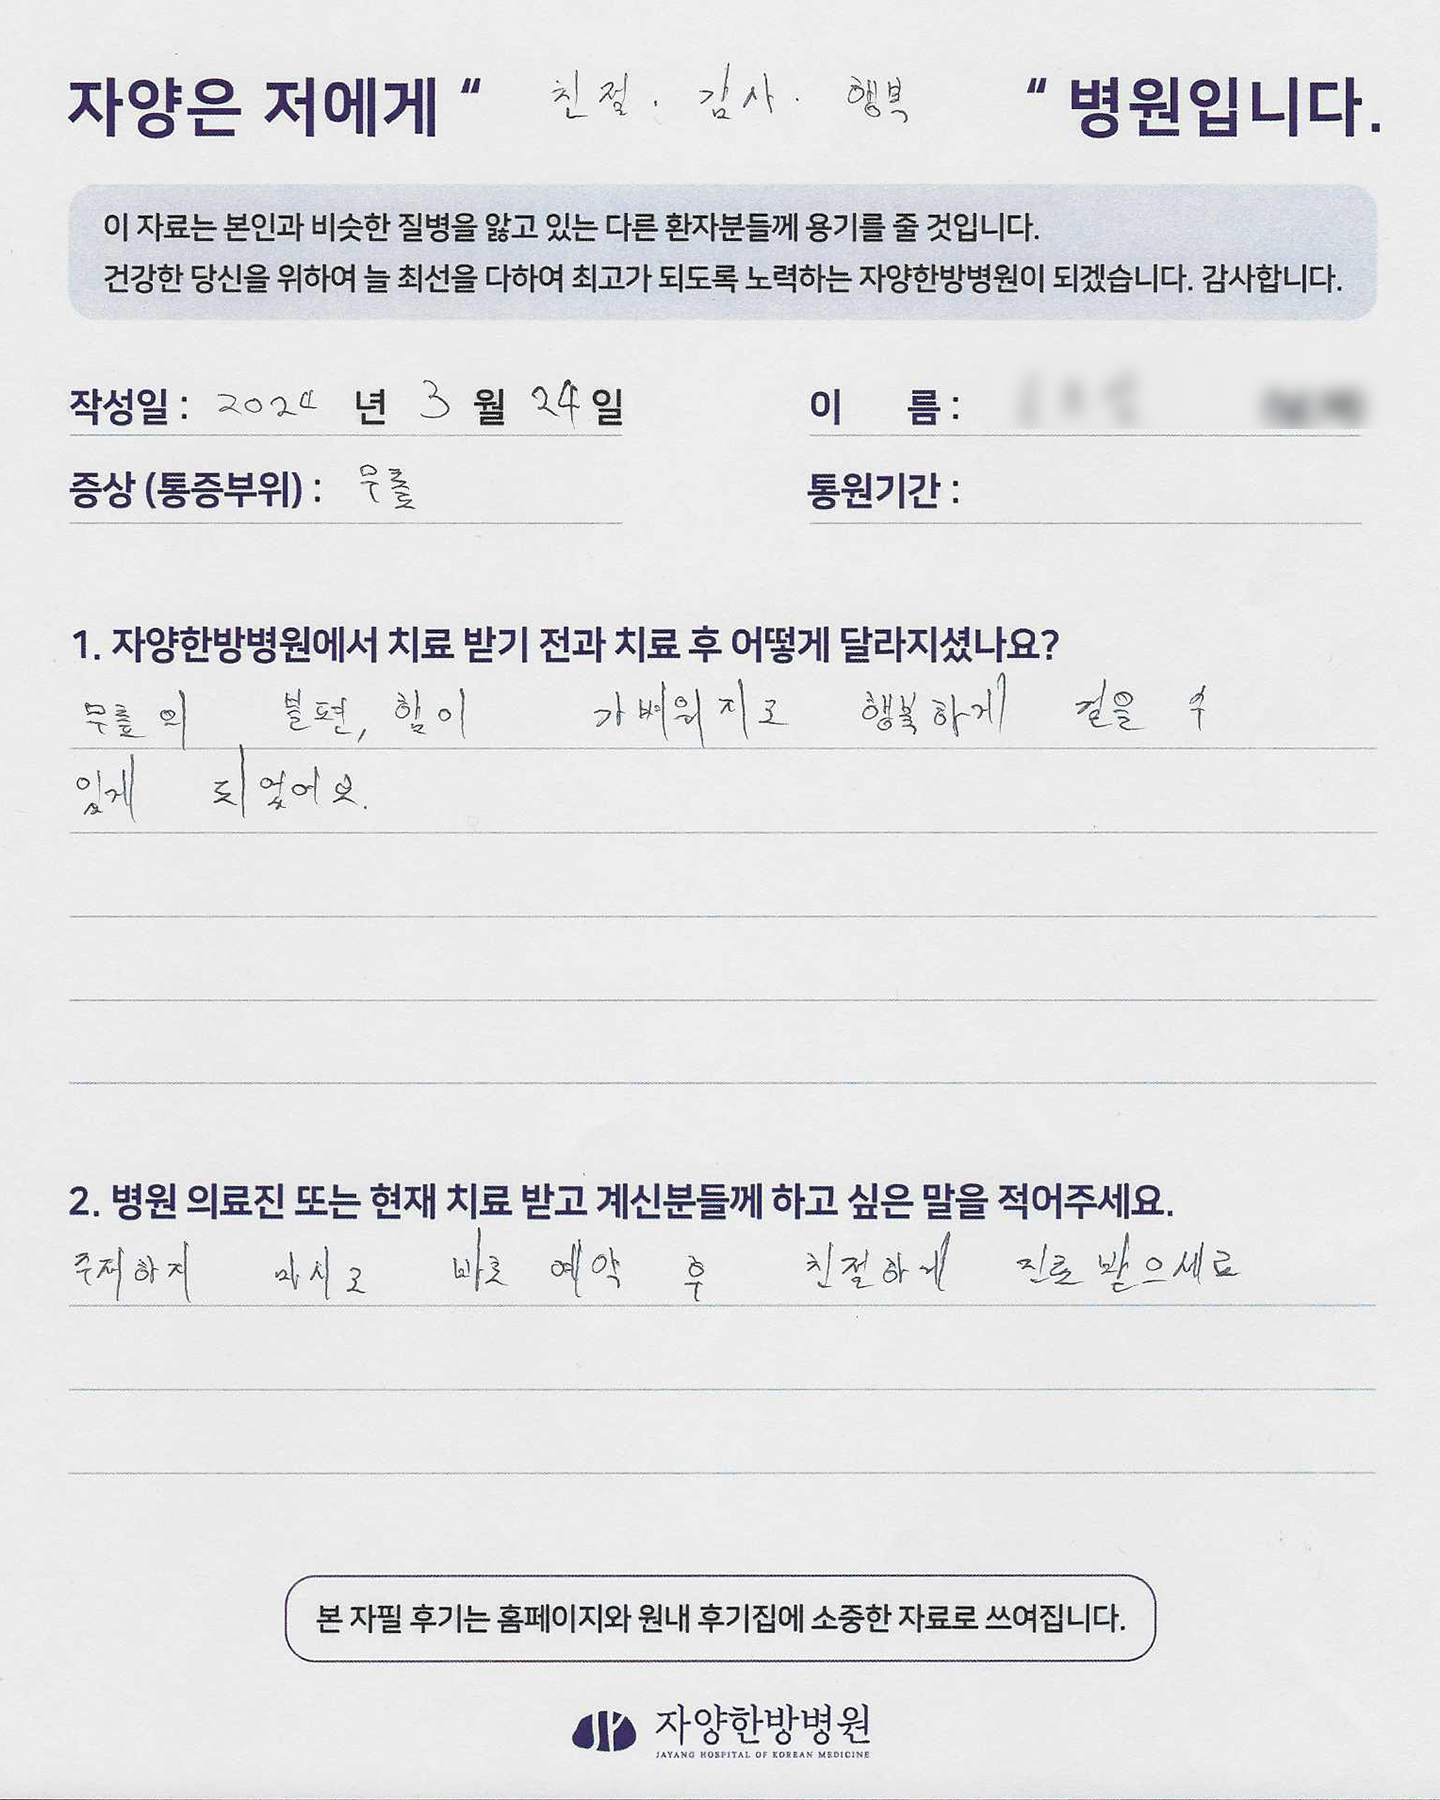 자양은 저에게 “ 친절 . 감사 . 행복 “ 병원입니다.
이 자료는 본인과 비슷한 질병을 앓고 있는 다른 환자분들께 용기를 줄 것입니다.
건강한 당신을 위하여 늘 최선을 다하여 최고가 되도록 노력하는 자양한방병원이 되겠습니다. 감사합니다.
작성일 : 2024 년 3 월 24 일 이 름 :
증상 (통증부위) : 무릎 통원기간 :
1. 자양한방병원에서 치료 받기 전과 치료 후 어떻게 달라지셨나요?
무릎의 불편, 힘이 가벼워지고 행복하게 걸을 수
있게 되었어요.
2. 병원 의료진 또는 현재 치료 받고 계신분들께 하고 싶은 말을 적어주세요.
주저하지 마시고 바로 예약 후 친절하게 진료 받으세요
본 자필 후기는 홈페이지와 원내 후기집에 소중한 자료로 쓰여집니다.
자양한방병원
JAYANG HOSPITAL OF KOREAN MEDICINE